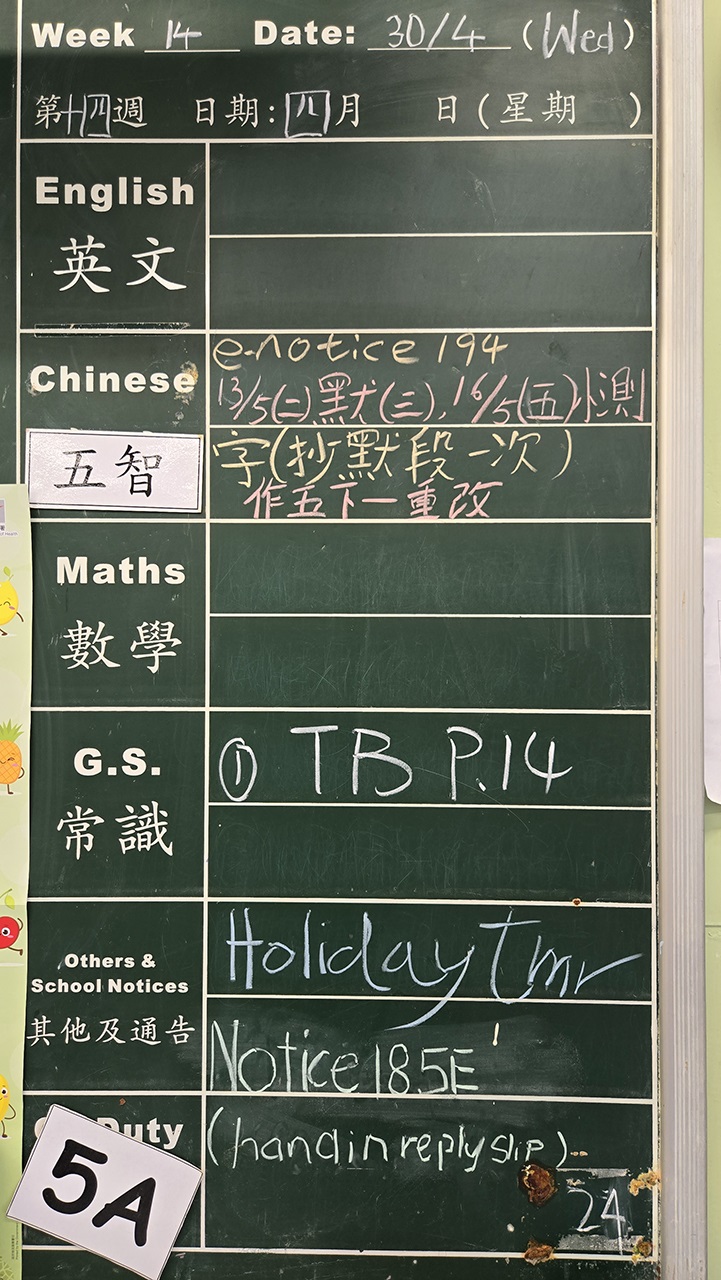 Week 14 Date: 30/4 (Wed)
第十四週 日期:四月 日(星期 )
English
英文
e-notice 194
Chinese
13/5(二)默(三),16/5(五)小測
五智
字(抄默段一次)
作五下一重改
Maths
數學
G.S.
① TB P.14
常識
Holiday Tmr
Others &
School Notices
其他及通告
Notice 185E
Duty
(hand in reply slip)
5A
24